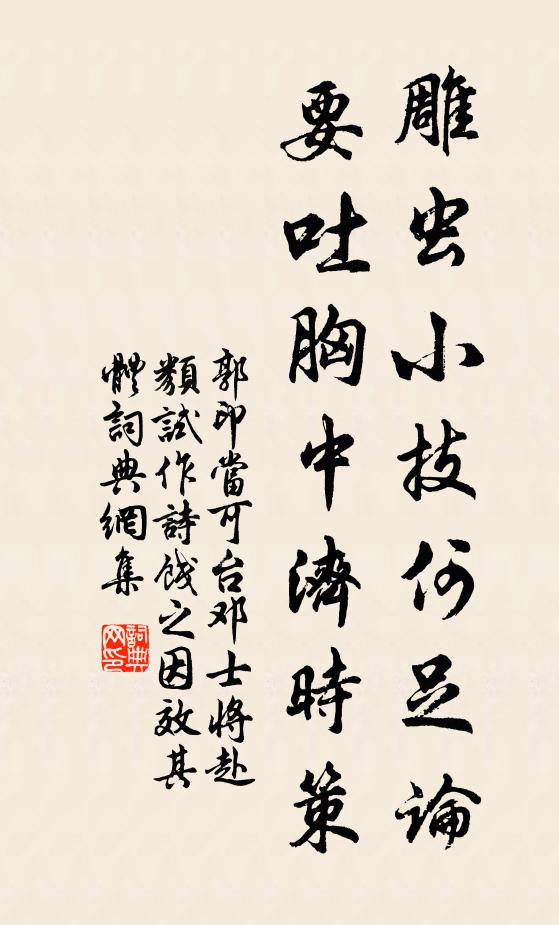 雕虫小技何足論
要吐胸中濟時策
郭印當可台邓士將赴
類試作詩餞之因效其
體詞典網集
詞典
网印